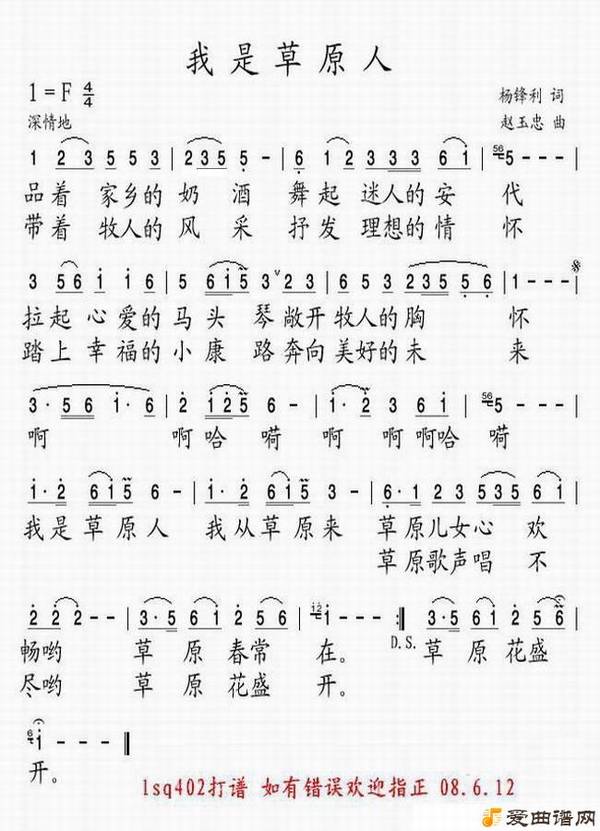 我是草原人
1=F 4/4
杨锋利 词
深情地
赵玉忠 曲
1 2 3 5 5 3 | 2·3 3 5 5 - | 6· 1 2 3 3 6 1 | 56 5 - - - |
品着 家乡的 奶 酒 舞起 迷人的 安 代
带着 牧人的 风 采 抒发 理想的 情 怀
3 5 6 i i 6 | 5 6 i 5 3 ∨ 3 | 2· 2 3 5 3 2 3 5 5 6 | 1 - - - |
拉起 心爱的 马头 琴 敞开 牧人的 胸 怀
踏上 幸福的 小康 路 奔向 美好的 未 来
3· 5 6 i· 6 | 2 i 2 5 6 - | i· 2 3 6 1 2 3 | 56 5 - - - |
啊 啊哈 嗬 啊 啊啊哈 嗬
i· 2 6 i 5 6 - | i· 2 6 i 5 3 - | 6· 1 2 3 5 6 5 i |
我是草原人 我从草原来 草原儿女心 欢
草原歌声唱 不
2 2 2 - - | i 3· 5 6 i 2 6 | i2 i - - :‖ 3· 5 6 i 5 6
畅哟 草 原 春常 在。 D.S. 草 原 花盛
尽哟 草 原 花盛 开。
6 i - - ‖
开。
lsq402打谱 如有错误欢迎指正 08.6.12
爱曲谱网